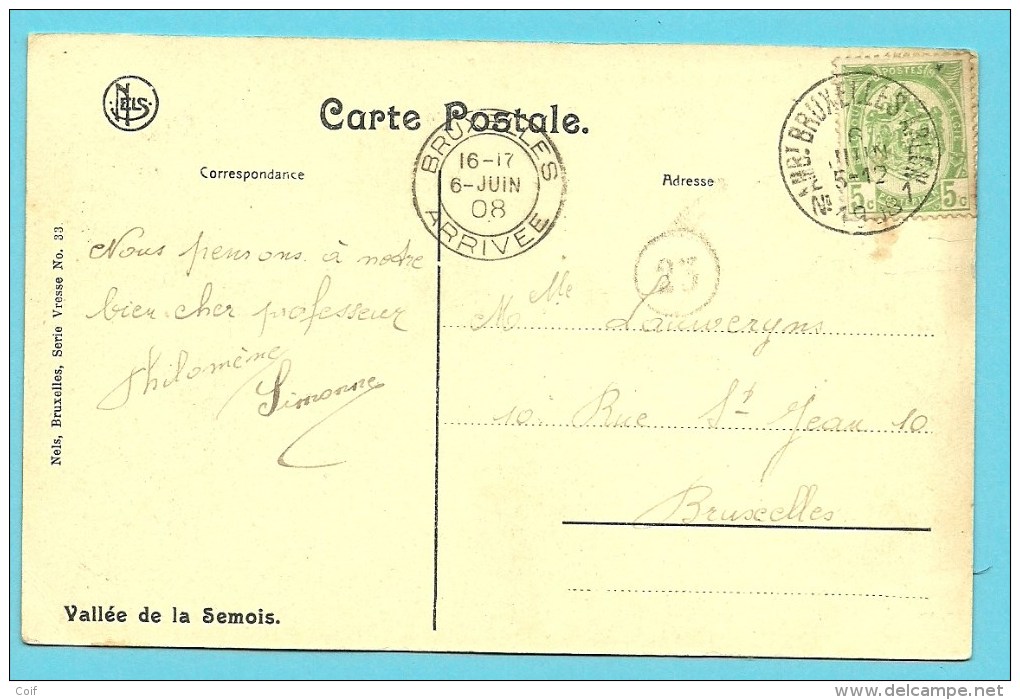 NELS
Carte Postale.
Correspondance
Adresse
BRUXELLES
16-17
6-JUIN
08
ARRIVÉE
AMBT BRUXELLES ARLON 1
6
JUIN
5-12
1908
POSTES
5c 5c
23
Nous pensons à notre
bien cher professeur
Philomène
Simonne
Mlle Lauweryns
10 Rue St Jean 10
Bruxelles
Nels, Bruxelles, Serie Vresse No. 33
Vallée de la Semois.
Coif
www.delcampe.net